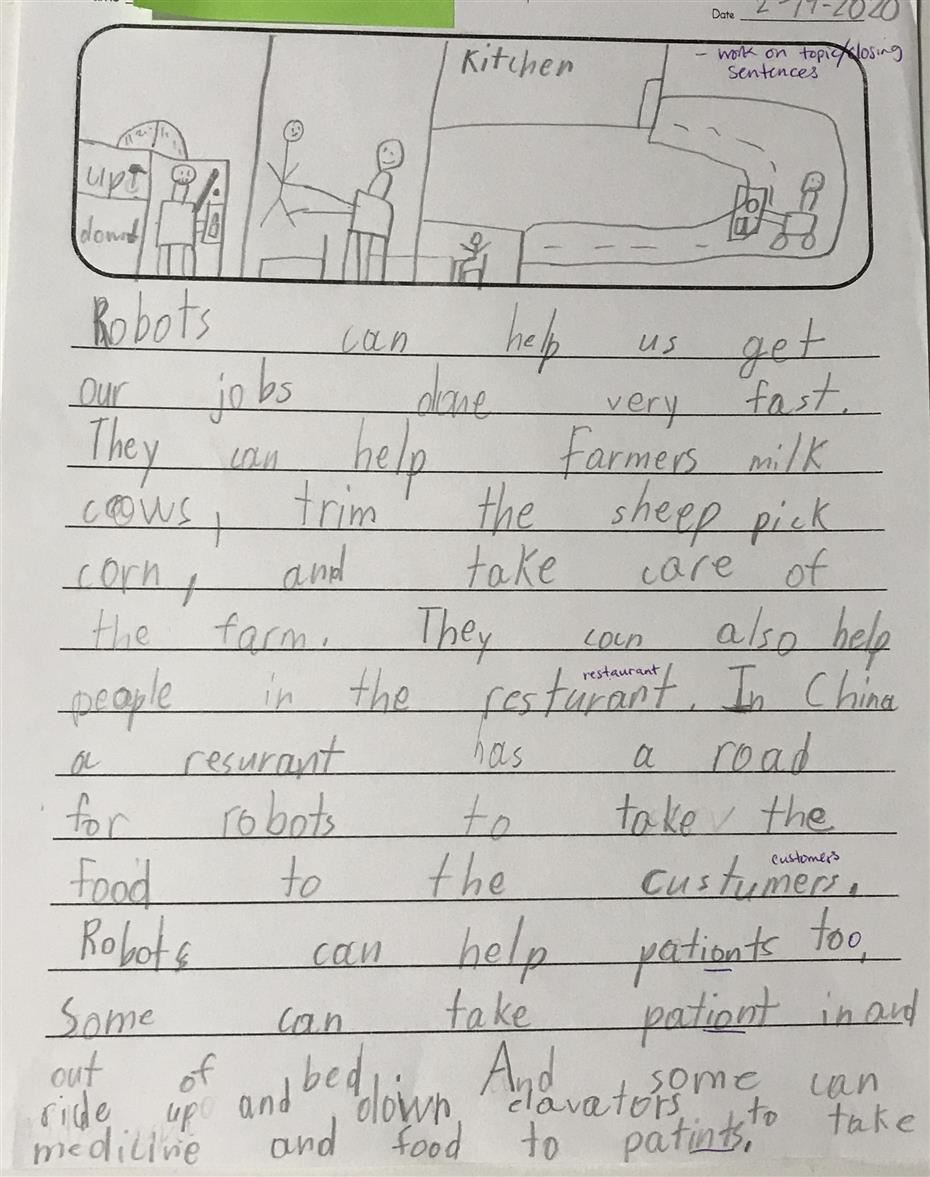 Date 2-19-2020
- work on topic/closing
sentences
Kitchen
up
down
Robots can help us get
our jobs done very fast.
They can help farmers milk
cows, trim the sheep pick
corn, and take care of
the farm. They can also help
restaurant
people in the resturant. In China
a resurant has a road
for robots to take the
customers
food to the custumers.
Robots can help pationts too,
Some can take pationt in and
out of bed. And some can
ride up and down elavators to take
medicine and food to patints.